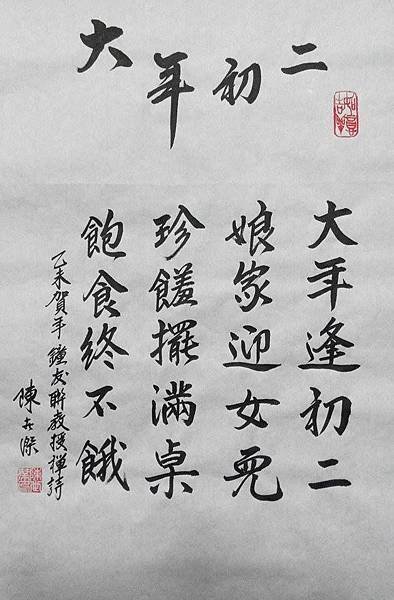 大年初二
大年逢初二
娘家迎女兒
珍饈擺滿桌
飽食終不餓
乙未賀年 鐘友聯教授禪詩
陳